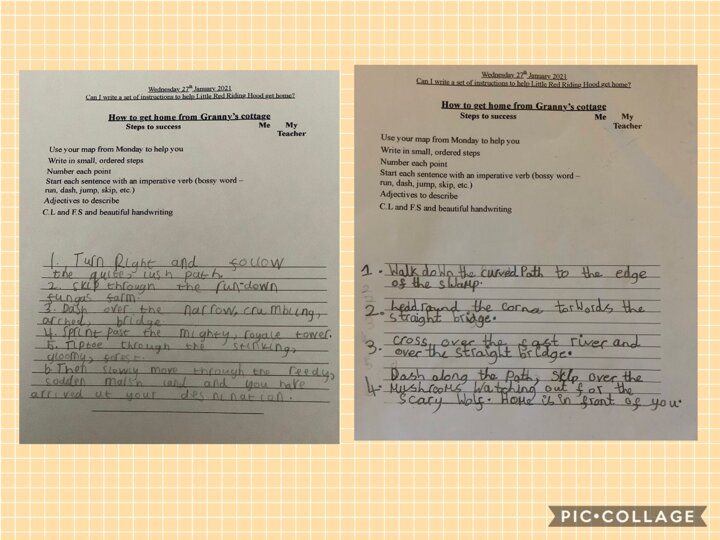 Wednesday 27th January 2021
Can I write a set of instructions to help Little Red Riding Hood get home?
How to get home from Granny's cottage
Steps to success Me My
Teacher
Use your map from Monday to help you
Write in small, ordered steps
Number each point
Start each sentence with an imperative verb (bossy word –
run, dash, jump, skip, etc.)
Adjectives to describe
C.L and F.S and beautiful handwriting
1. Turn Right and follow
the quite, lush path.
2. Skip through the run-down
fungas farm.
3. Dash over the narrow, crumbling,
arched, bridge.
4. Sprint past the mighty, royale tower.
5. Tiptoe through the stinking,
gloomy, forest.
6 Then slowly move through the reedy,
sodden marsh land and you have
arrived at your desination.
Wednesday 27th January 2021
Can I write a set of instructions to help Little Red Riding Hood get home?
How to get home from Granny's cottage
Steps to success Me My
Teacher
Use your map from Monday to help you
Write in small, ordered steps
Number each point
Start each sentence with an imperative verb (bossy word –
run, dash, jump, skip, etc.)
Adjectives to describe
C.L and F.S and beautiful handwriting
1. Walk down the curved Path to the edge
of the swamp.
2. head round the corna torwords the
straight bridge.
3. cross over the fast river and
over the straight bridge.
Dash along the Path, Skip over the
4. Mushrooms Watching out for the
Scary Wolf. Home is in front of you.
PIC•COLLAGE